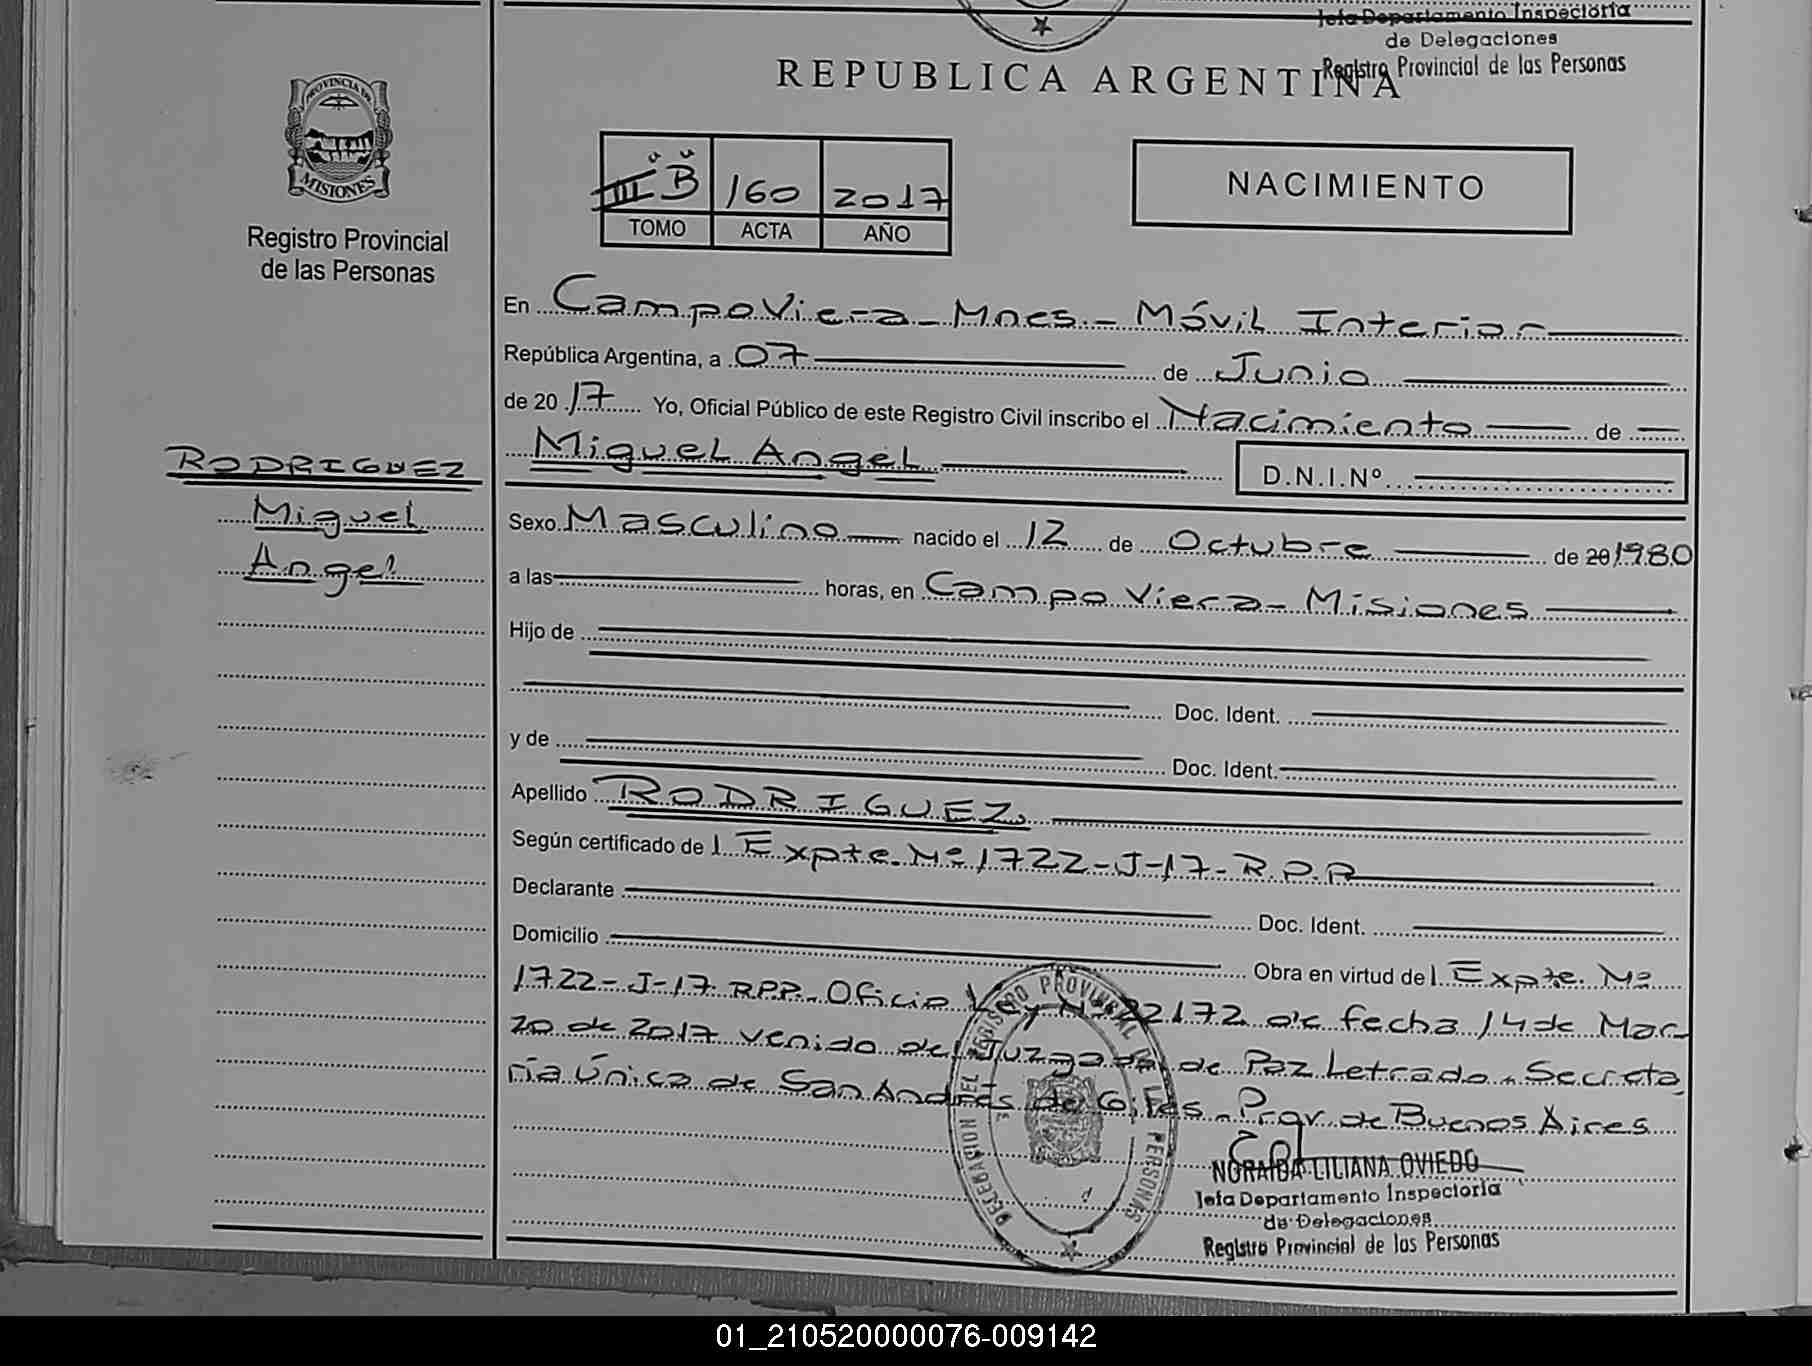 Jefa Departamento Inspectoría
de Delegaciones
Registro Provincial de las Personas
REPUBLICA ARGENTINA
PROVINCIA DE
MISIONES
Registro Provincial
de las Personas
III B 160 2017
TOMO ACTA AÑO
NACIMIENTO
En Campo Viera - Mnes. - Móvil Interior
República Argentina, a 07 de Junio
de 20 17 Yo, Oficial Público de este Registro Civil inscribo el Nacimiento de
Miguel Angel D.N.I.Nº
RODRIGUEZ
Miguel
Angel
Sexo Masculino nacido el 12 de Octubre de 20 1980
a las horas, en Campo Viera - Misiones
Hijo de
Doc. Ident.
y de Doc. Ident.
Apellido RODRIGUEZ
Según certificado de l Expte. Nº 1722-J-17-R.P.P.
Declarante Doc. Ident.
Domicilio Obra en virtud de l Expte. Nº
1722-J-17 R.P.P. Oficio Ley Nº 22172 de fecha 14 de Mar-
zo de 2017 venido del Juzgado de Paz Letrado - Secreta
ría Única de San Andrés de Giles - Prov. de Buenos Aires
DELEGACION DEL REGISTRO PROVINCIAL DE LAS PERSONAS
NORAIDA LILIANA OVIEDO
Jefa Departamento Inspectoría
de Delegaciones
Registro Provincial de las Personas
01_210520000076-009142